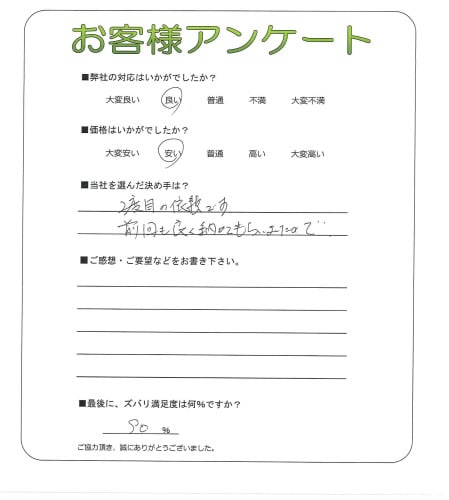 お客様アンケート
■弊社の対応はいかがでしたか？
大変良い 良い 普通 不満 大変不満
■価格はいかがでしたか？
大変安い 安い 普通 高い 大変高い
■当社を選んだ決め手は？
2度目の依頼です
前回も良く納めてもらいましたので‥
■ご感想・ご要望などをお書き下さい。
■最後に、ズバリ満足度は何%ですか？
90 %
ご協力頂き、誠にありがとうございました。